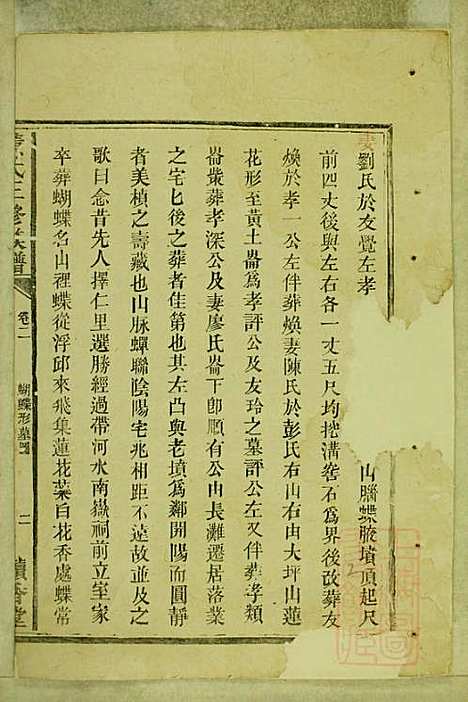 妻劉氏於友覺左孝山腦蝶腋墳頂起尺
前四丈後與左右各一丈五尺均挖溝砦石爲界後改葬友
煥於孝一公左伴葬煥妻陳氏於彭氏右山右由大坪山蓮
花形至黃土崙爲孝評公及友玲之墓評公左又伴葬孝類
崙葬孝深公及妻廖氏崙下卽順有公山長灘遷居落業
之宅匕後之葬者佳第也其左凸與老墳爲鄰開陽而圓靜
者美楨之壽藏也山脉蟬聯陰陽宅兆相距不遠故並及之
歌曰念昔先人擇仁里選勝經過帶河水南嶽祠前立至家
卒葬蝴蝶名山裡蝶從浮邱來飛集蓮花藥百花香處蝶常
氏三修族譜
卷二
蝴蝶形墓圖
二
香堂